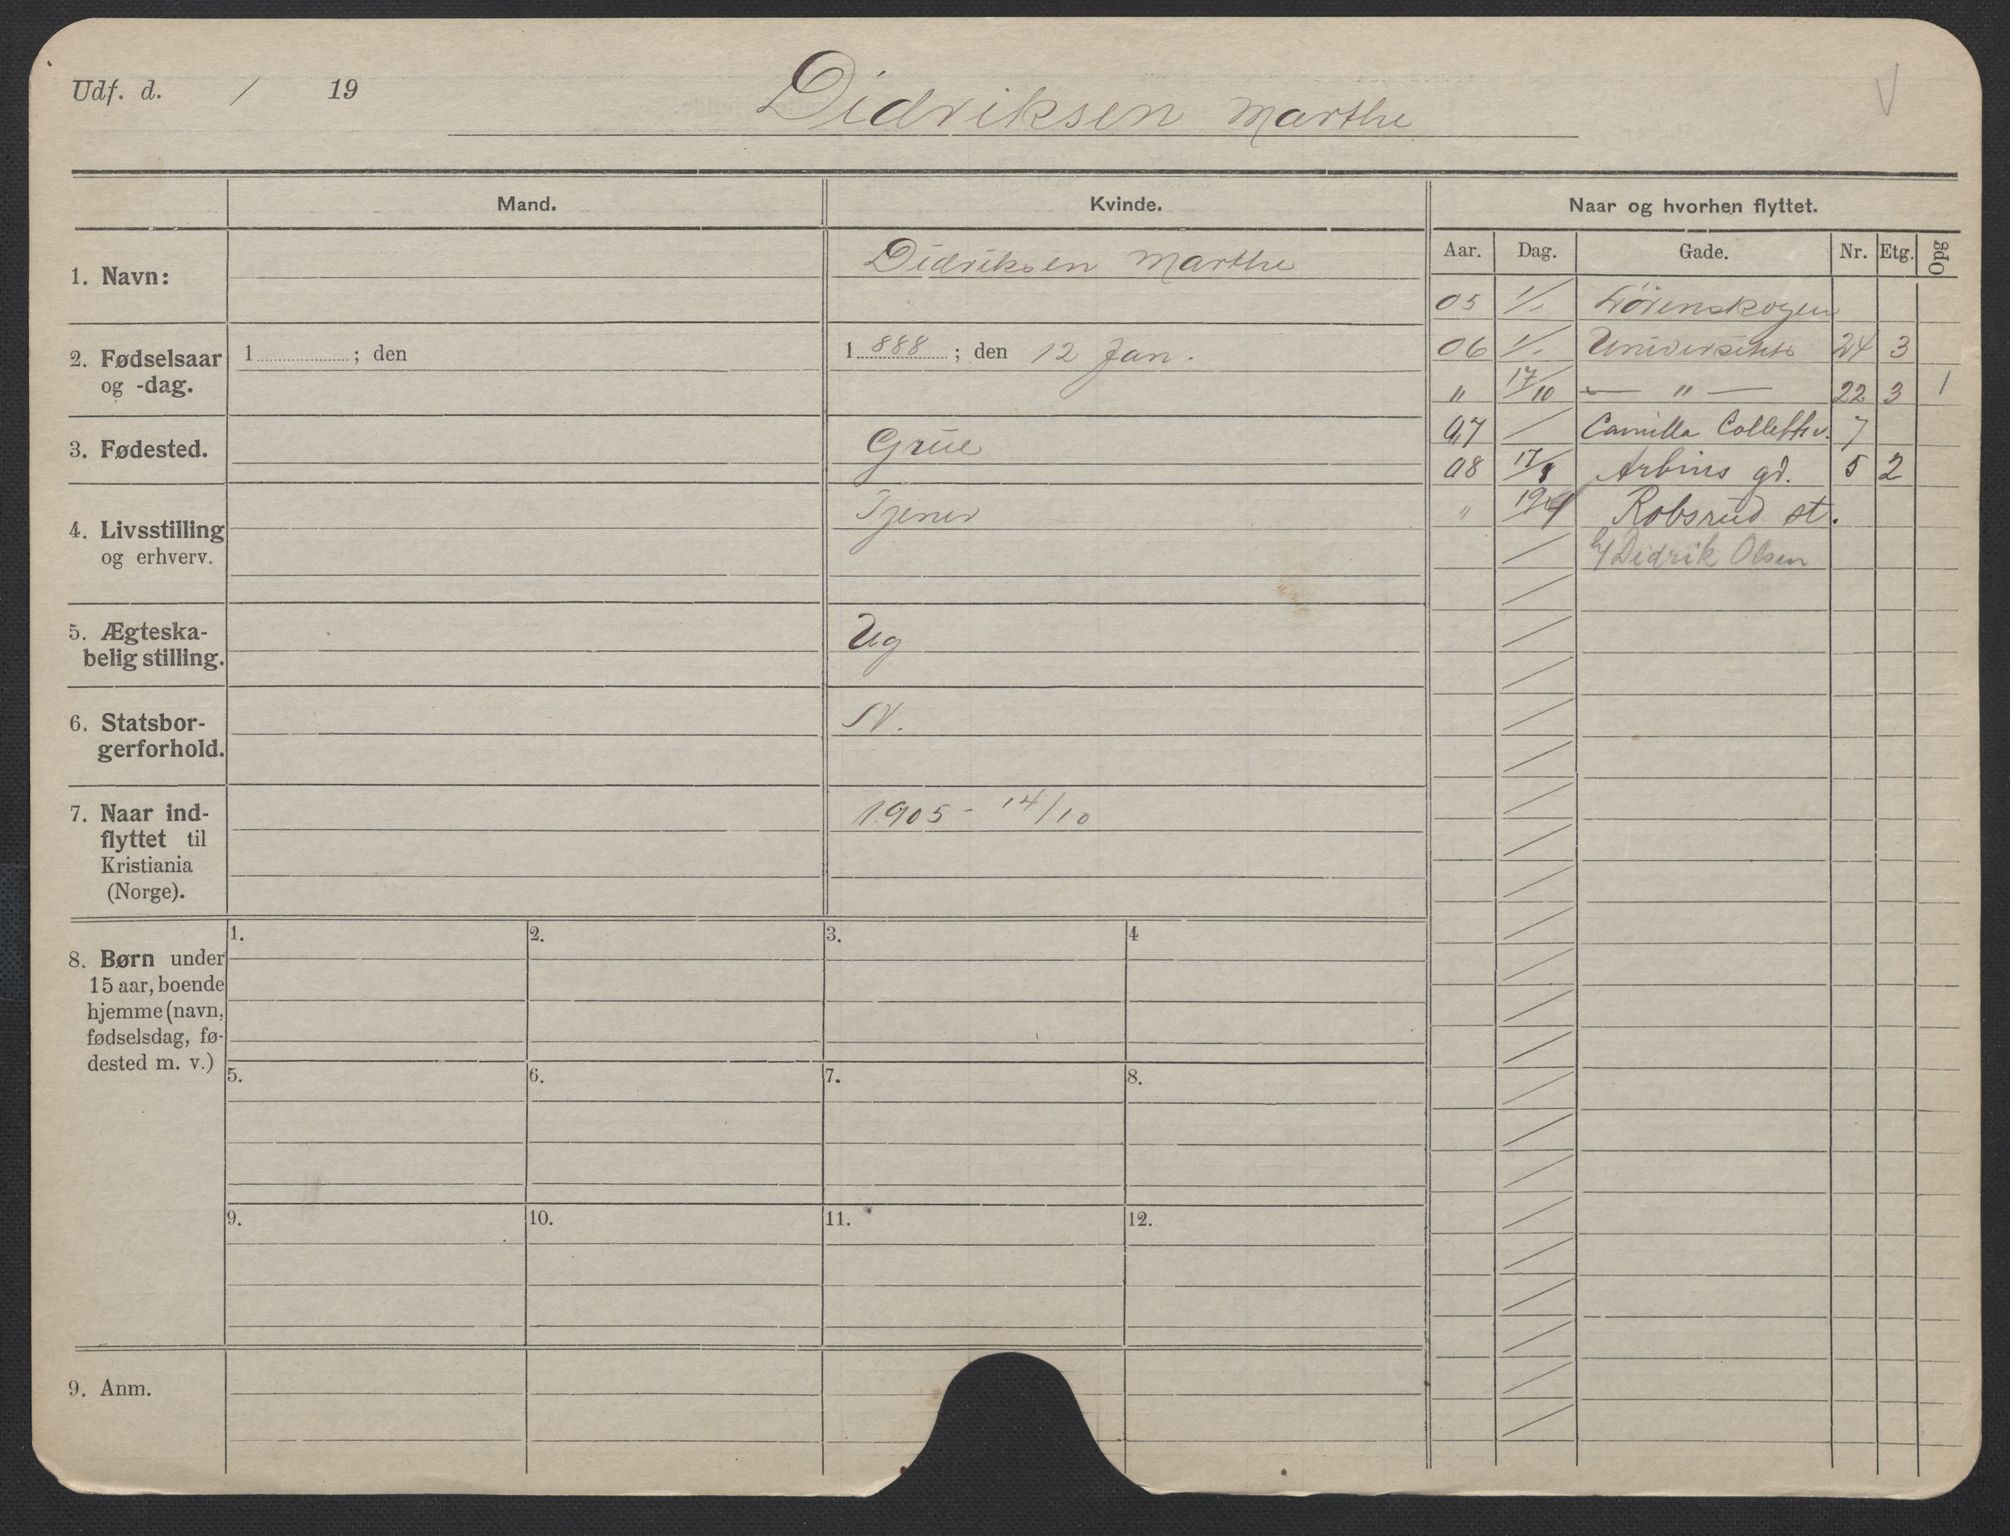 Udf. d. / 19
Didriksen Marthe
Mand. Kvinde. Naar og hvorhen flyttet.
Aar. Dag. Gade. Nr. Etg. Opg
1. Navn: Didriksen Marthe
2. Fødselsaar og -dag. 1 ; den
1 888 ; den 12 Jan.
3. Fødested. Grue
4. Livsstilling og erhverv. Tjener
5. Ægteska-
belig stilling. Ug
6. Statsbor-
gerforhold. N.
7. Naar ind-
flyttet til
Kristiania
(Norge).
1905 - 14/10
05 1/1 Lörenskogen
06 1/1 Universitets 24 3
" 17/10 — " — 22 3 1
07 / Camilla Colletts v. 7
08 17/8 Arbins gd. 5 2
" Robsrud st.
Didrik Olsen
8. Børn under
15 aar, boende
hjemme (navn,
fødselsdag, fø-
dested m. v.)
1. 2. 3. 4
5. 6. 7. 8.
9. 10. 11. 12.
9. Anm.